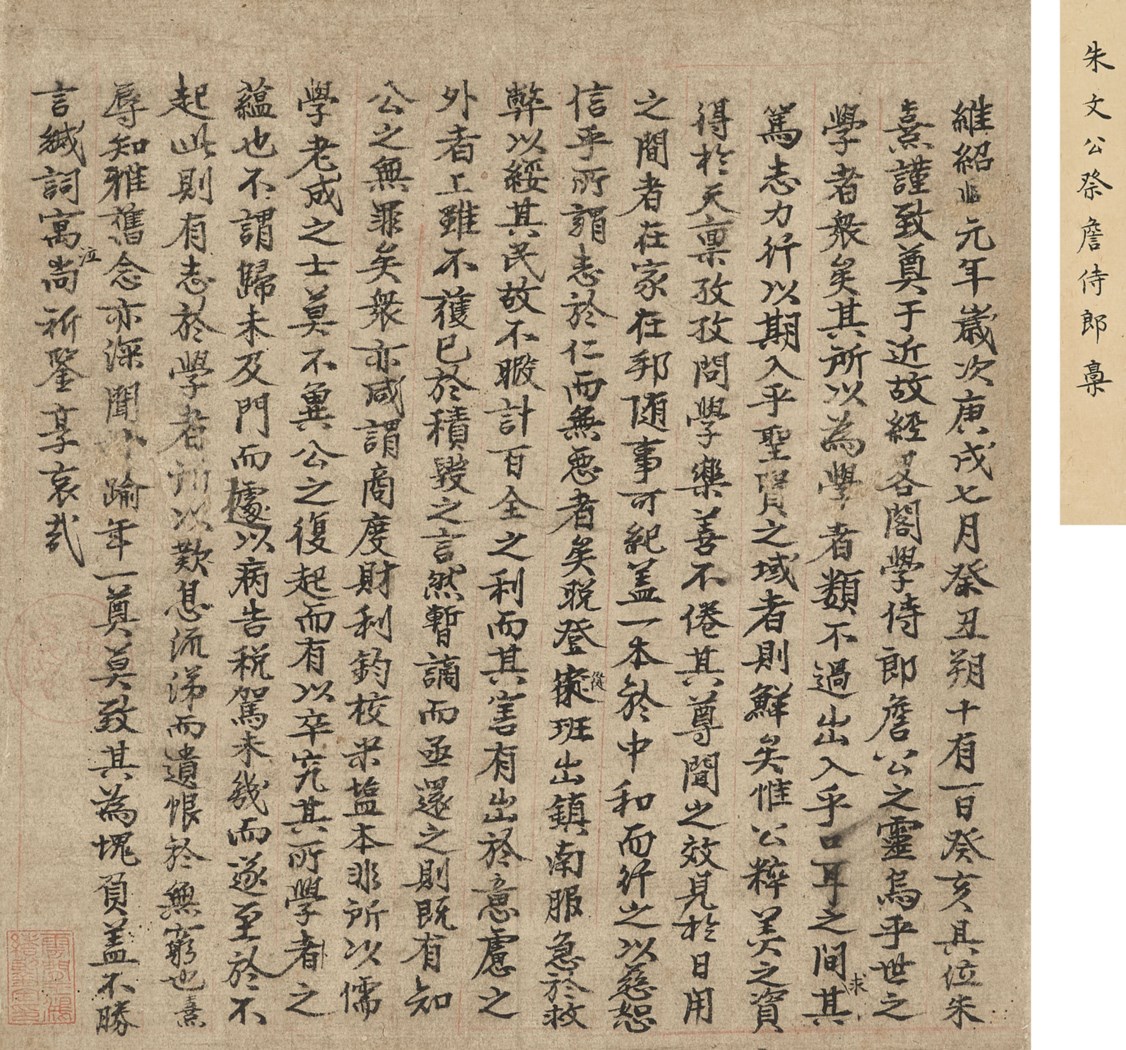 朱文公祭詹侍郎藁
維紹熙元年歲次庚戌七月癸丑朔十有一日癸亥具位朱
熹謹致奠于近故經略閣學侍郎詹公之靈烏乎世之
學者衆矣其所以為學者類不過出入乎口耳之間其求
篤志力行以期入乎聖賢之域者則鮮矣惟公粹美之資
得於天稟孜孜問學樂善不倦其尊聞之效見於日用
之間者在家在邦隨事可紀盖一本於中和而行之以慈恕
信乎所謂志於仁而無惡者矣晚登從班出鎮南服急於救
弊以綏其民故不暇計百全之利而其害有出於意慮之
外者上雖不獲已於積毀之言然暫謫而亟還之則既有知
公之無罪矣衆亦咸謂商度財利鈞校米塩本非所以儒
學老成之士莫不冀公之復起而有以卒究其所學者之
蘊也不謂歸未及門而遽以病告稅駕未幾而遂至於不
起此則有志於學者所以歎息流涕而遺恨於無窮也熹
辱知雅舊念亦深聞踰年一奠莫致其為愧負盖不勝
言緘詞寓泣尚祈鑒享哀哉